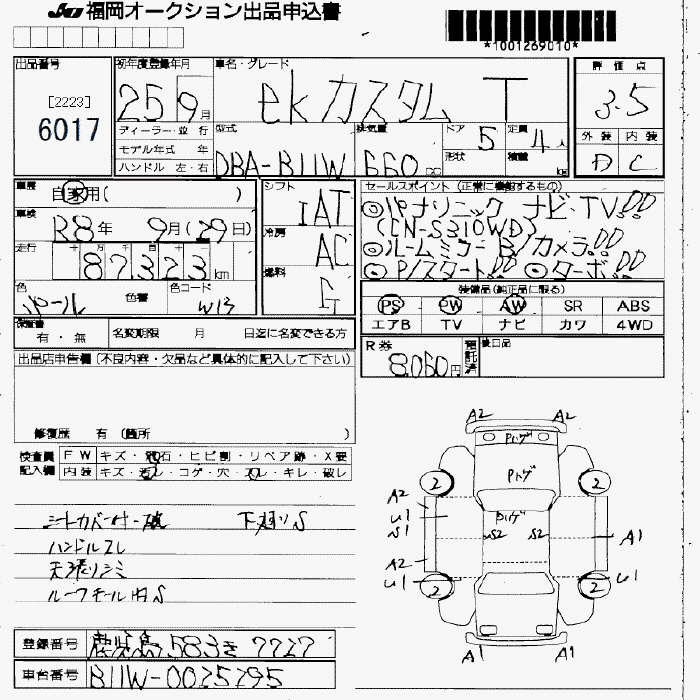 JU 福岡オークション出品申込書
*1001269010*
出品番号
[2223]
6017
初年度登録年月
25 9月
車名・グレード
ekカスタム T
評価点
3.5
外装 内装
D C
ディーラー・並行
モデル年式 年
ハンドル 左・右
型式
DBA-B11W
排気量
660 cc
ドア 5
形状
定員 4 人
積量 kg
車歴
自家用( )
車検
R8年 9月(29日)
走行
十 万 千 百 十
87323 km
色
パール
色替
色コード
W13
シフト
IAT
冷房
AC
燃料
G
セールスポイント (正常に機能するもの)
◎パナソニック ナビ・TV!!
(CN-S310WD)
◎ルームミラーB/カメラ!!
◎P/スタート!! ◎ターボ!!
装備品(純正品に限る)
PS PW AW SR ABS
エアB TV ナビ カワ 4WD
保証書
有・無
名変期限 月 日迄に名変できる方
R券
8,060円
預託済
後日品
出品店申告欄(不良内容・欠品など具体的に記入して下さい)
修復歴 有 (箇所 )
検査員
記入欄
FW キズ・飛石・ヒビ割・リペア跡・X要
内装 キズ・汚レ・コゲ・穴・スレ・キレ・破レ
シートカバー付・破 下廻りS
ハンドルスレ
天張リシミ
ルーフモール凹S
登録番号
鹿児島 583 き 7727
車台番号
B11W-0025295
A2 A2
Pトゲ
Pトゲ
Pトゲ
2 2
A2
U1
S1
US2 S2
A1
A2
U1 U1
2 2
A1 A1